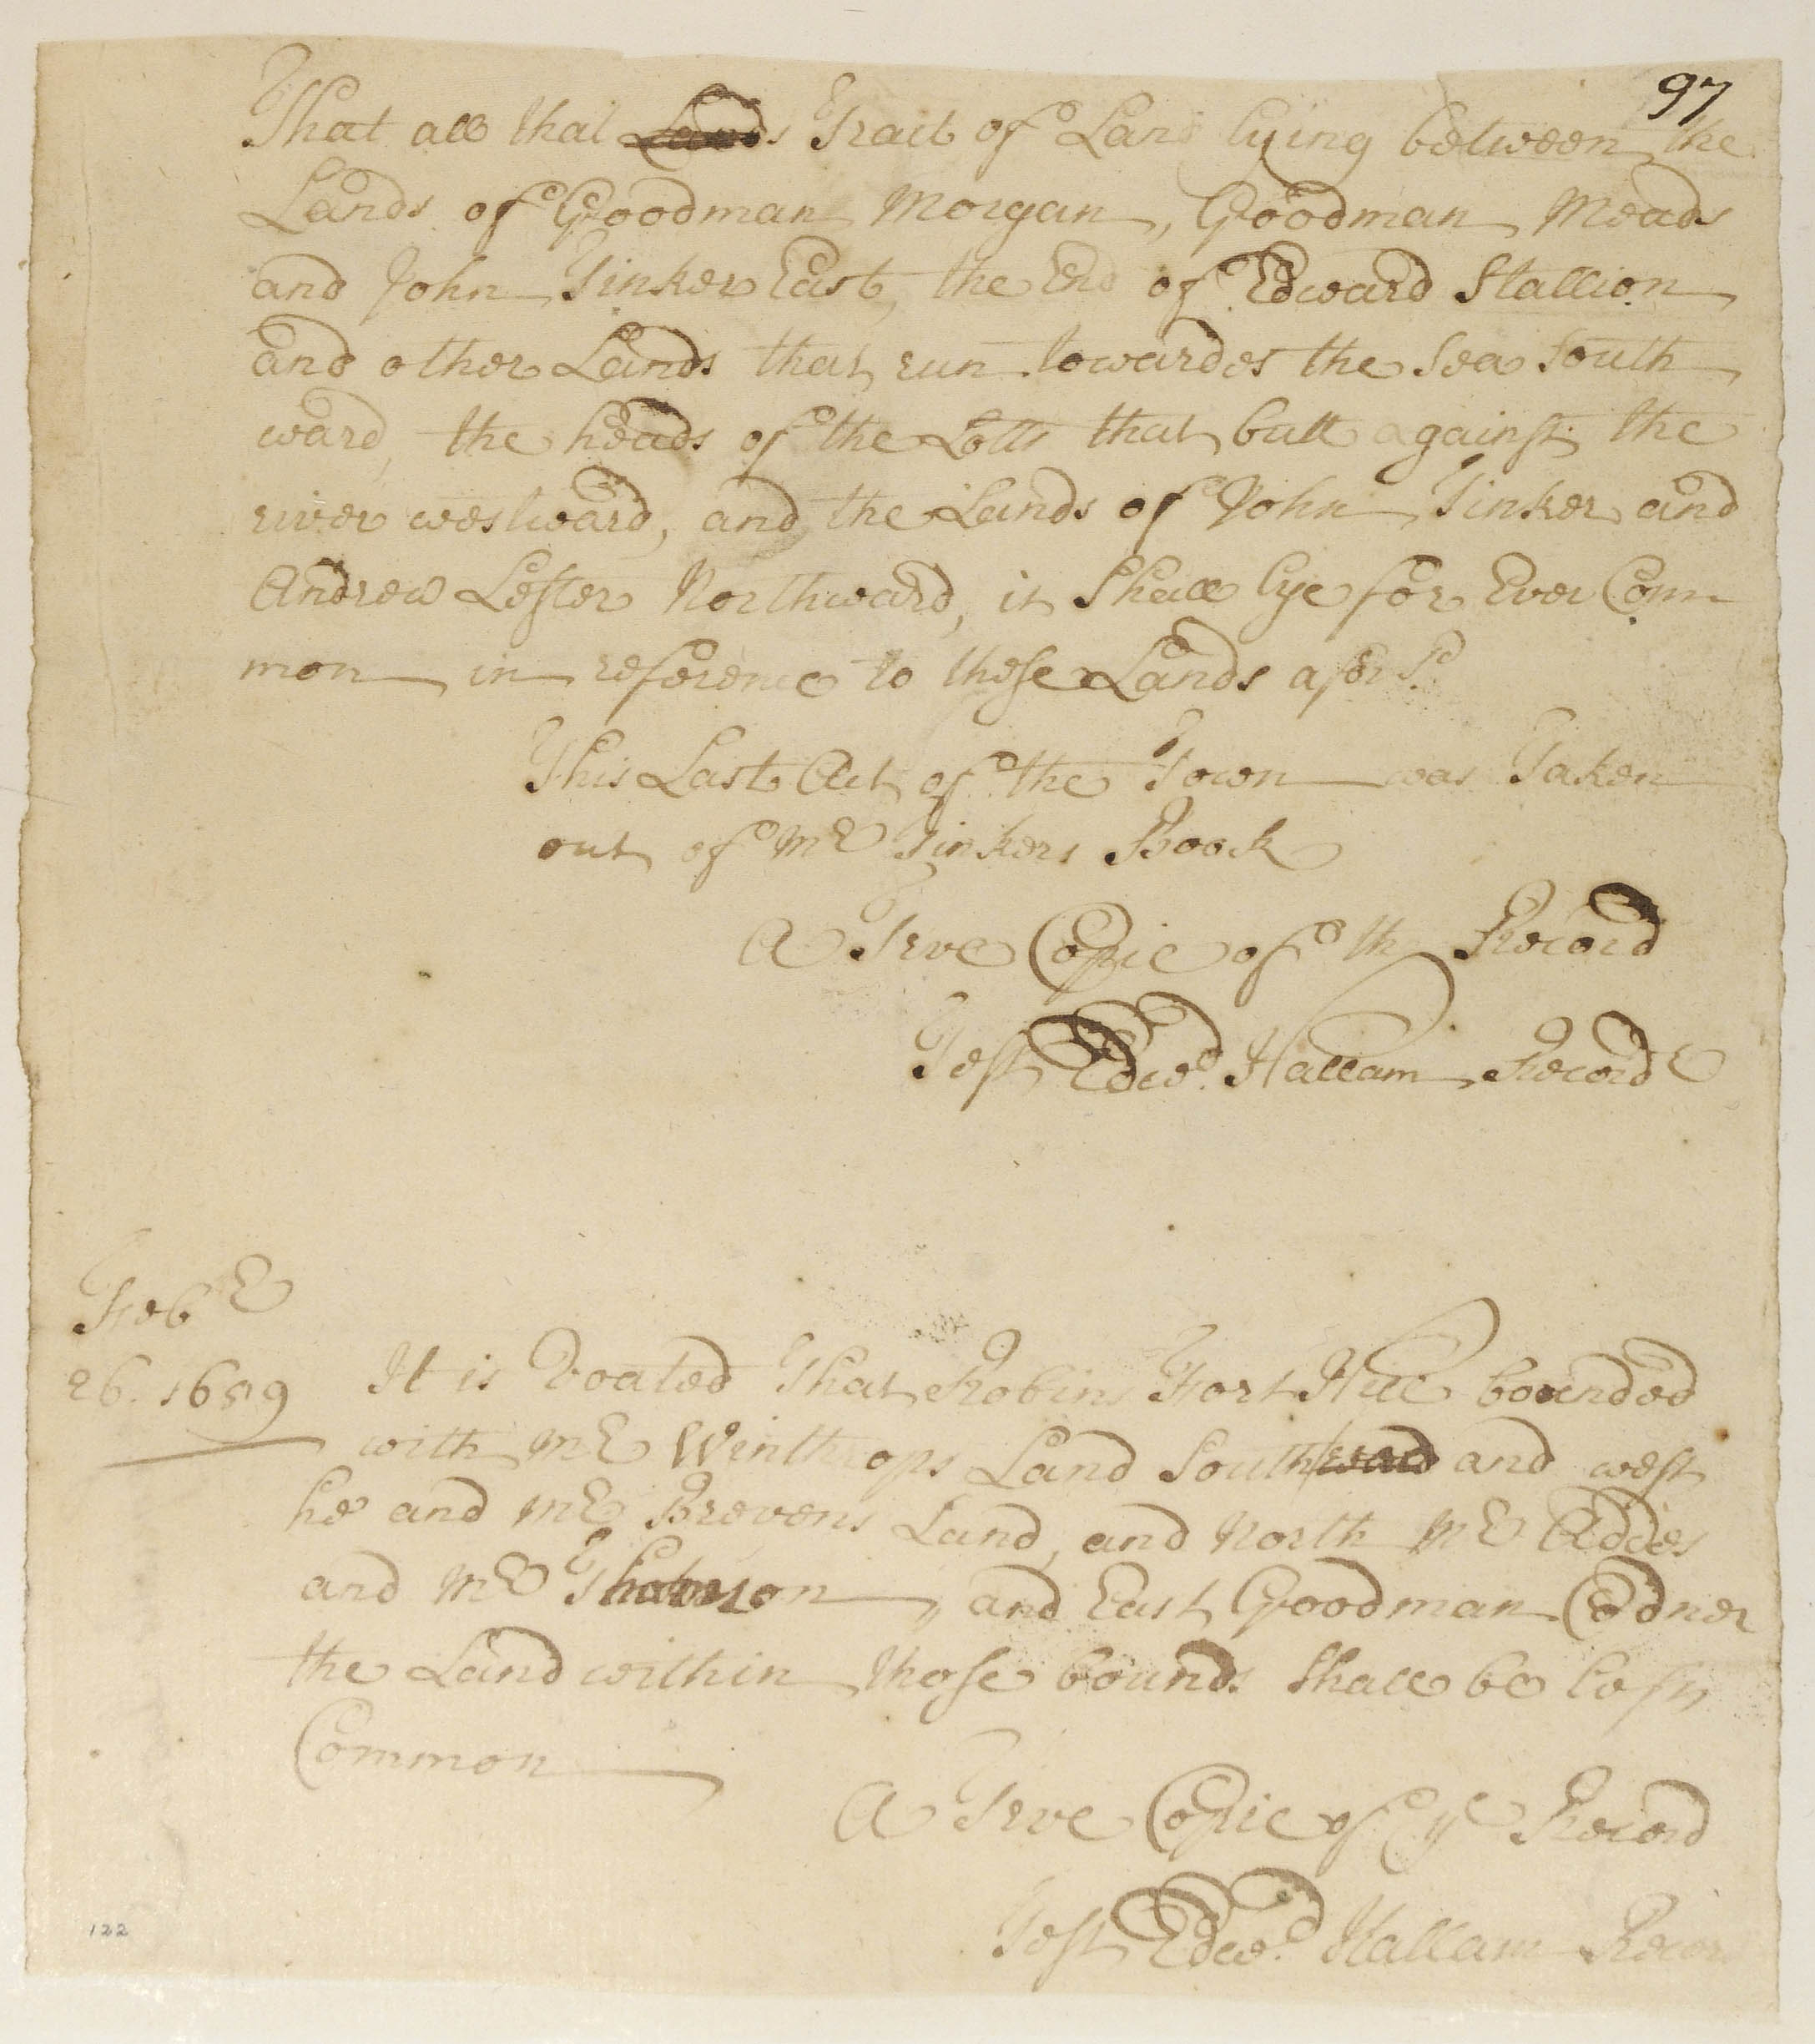 97
That all that Lands Tract of Land lying between the
Lands of Goodman Morgan, Goodman Meads
and John Tinker East, the End of Edward Stallion
and other Lands that run towardes the Sea South
ward, the heads of the Lotts that butt against the
river westward, and the Lands of John Tinker and
Andrew Lester Northward, it Shall lye for Ever Com
mon in reference to those Lands aforsd.
This Last Act of the Town was Taken
out of Mr Tinkers Book
A Trve Copie of th Record
Test Edwd. Hallam Recordr
Febr
26. 1659
It is Voated That Robins Fort Hill bounded
with Mr Winthrops Land Southward and west
he and Mr Brevens Land, and North Mr Addes
and Mr, and East Goodman Codner
the Land within those bounds Shall be left
Common
A Trve Copie of ye Record
Test Edwd. Hallam Recor
122